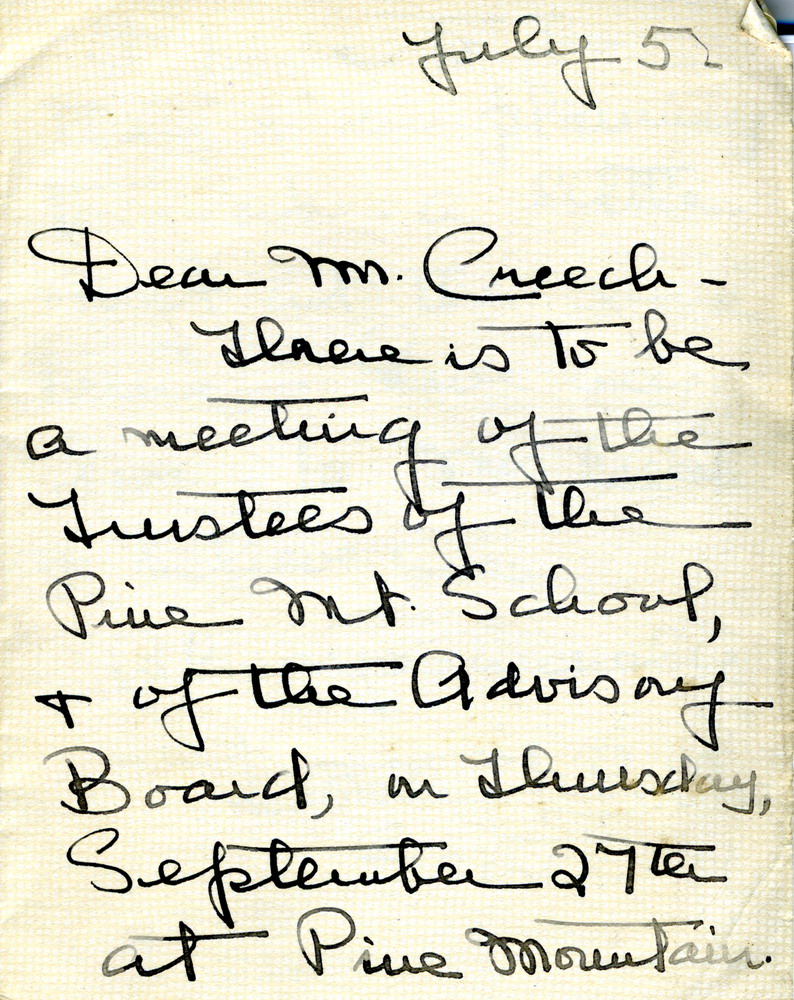 July 5
Dear Mr. Creech -
There is to be
a meeting of the
Trustees of the
Pine Mt. School,
+ of the Advisory
Board, on Thursday,
September 27th
at Pine Mountain.